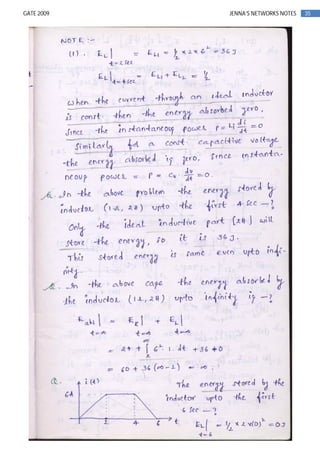 GATE 2009 JENNA'S NETWORKS NOTES 35
NOTE :-
(1). EL| = EL1 = ½ × 2 × 6² = 36 J
t=2 sec
EL| t=4 sec = EL1 + EL2 =
When the current through an ideal inductor
is const. then the energy absorbed zero,
since the instantaneous power P = L di/dt = 0
Similarly for a const. capacitive voltage
the energy absorbed is zero, since instanta-
neous power = P = C di/dt = 0.
In the above problem the energy stored by
inductor (1Ω, 2H) upto the first 4 sec —?
Only the ideal inductive part (2H) will
store the energy, so it is 36 J.
This stored energy is same even upto infi-
nity.
In the above case the energy absorbed by
the inductor (1Ω, 2H) upto infinity is —?
Eabs| = ER| + EL|
t=∞ t=∞ t=∞
= 24 + ∫ 6². 1. dt + 36 + 0
= 60 + 36 (∞ - 2) = ∞.
Q. i(t) The energy stored by the
6A inductor upto the first
6 sec —?
2 4 6 t EL| = ½ × 2 × (0)² = 0 J
t=6